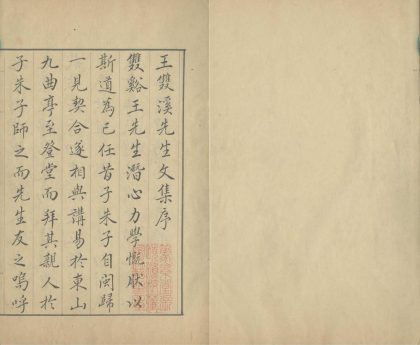 王雙溪先生文集序
雙谿王先生潛心力學慨然以
斯道為已任昔子朱子自閩歸
一見契合遂相與講易於東山
九曲亭至登堂而拜其親人於
子朱子師之而先生友之嗚呼